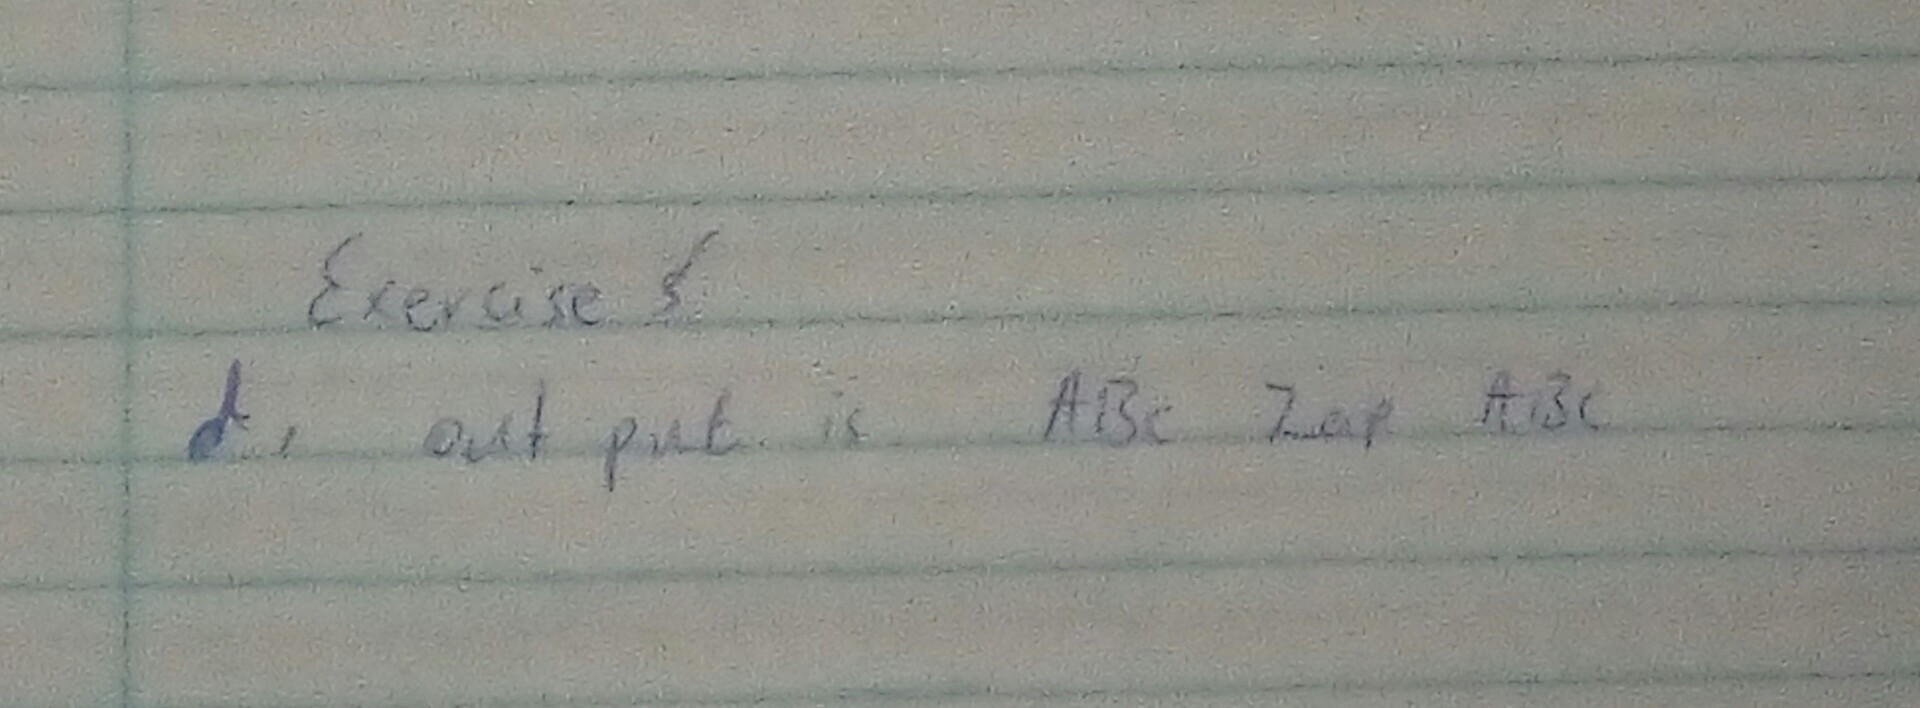 Exercise 5
d, out put is ABC Zap ABC